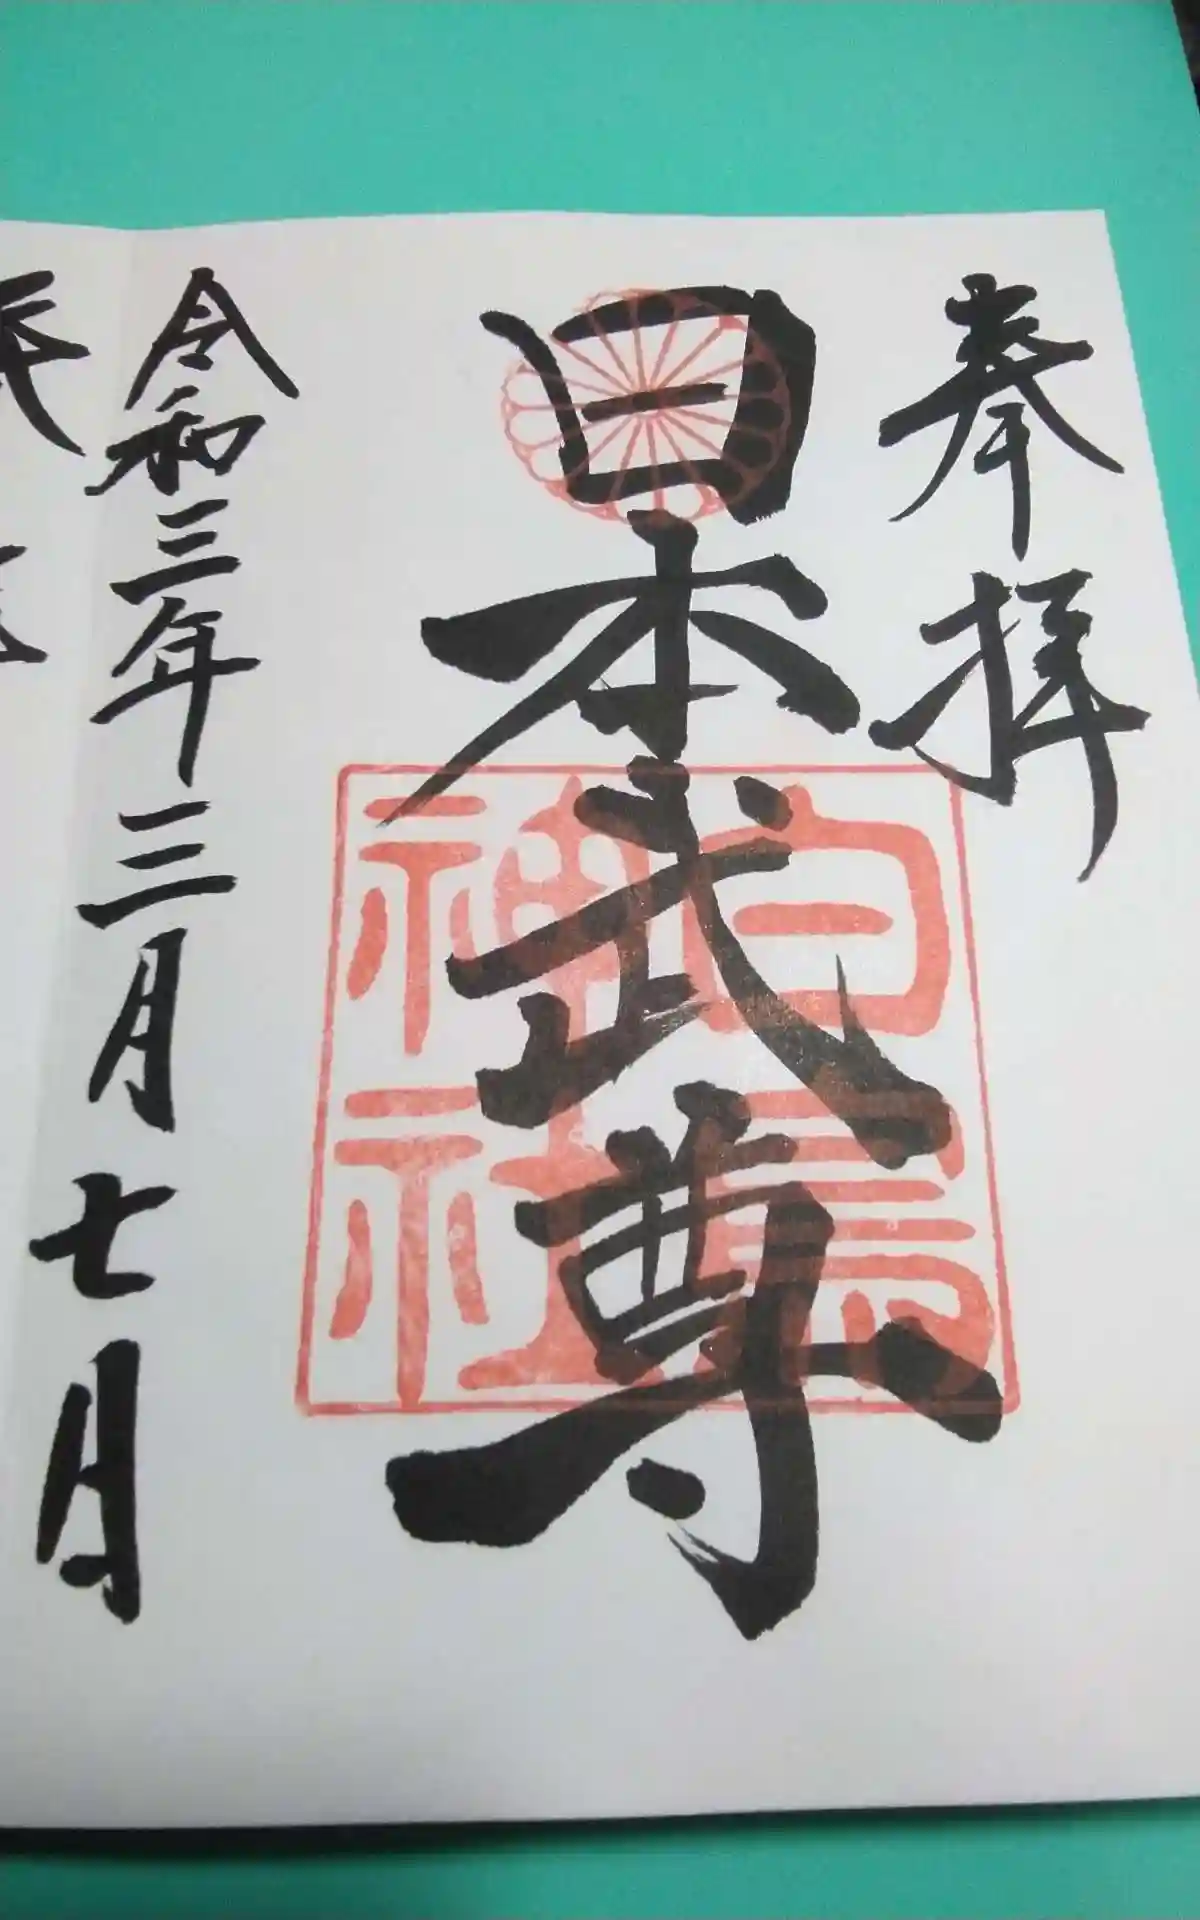 奉拝
日本武尊
白鳥
神社
令和三年三月七日